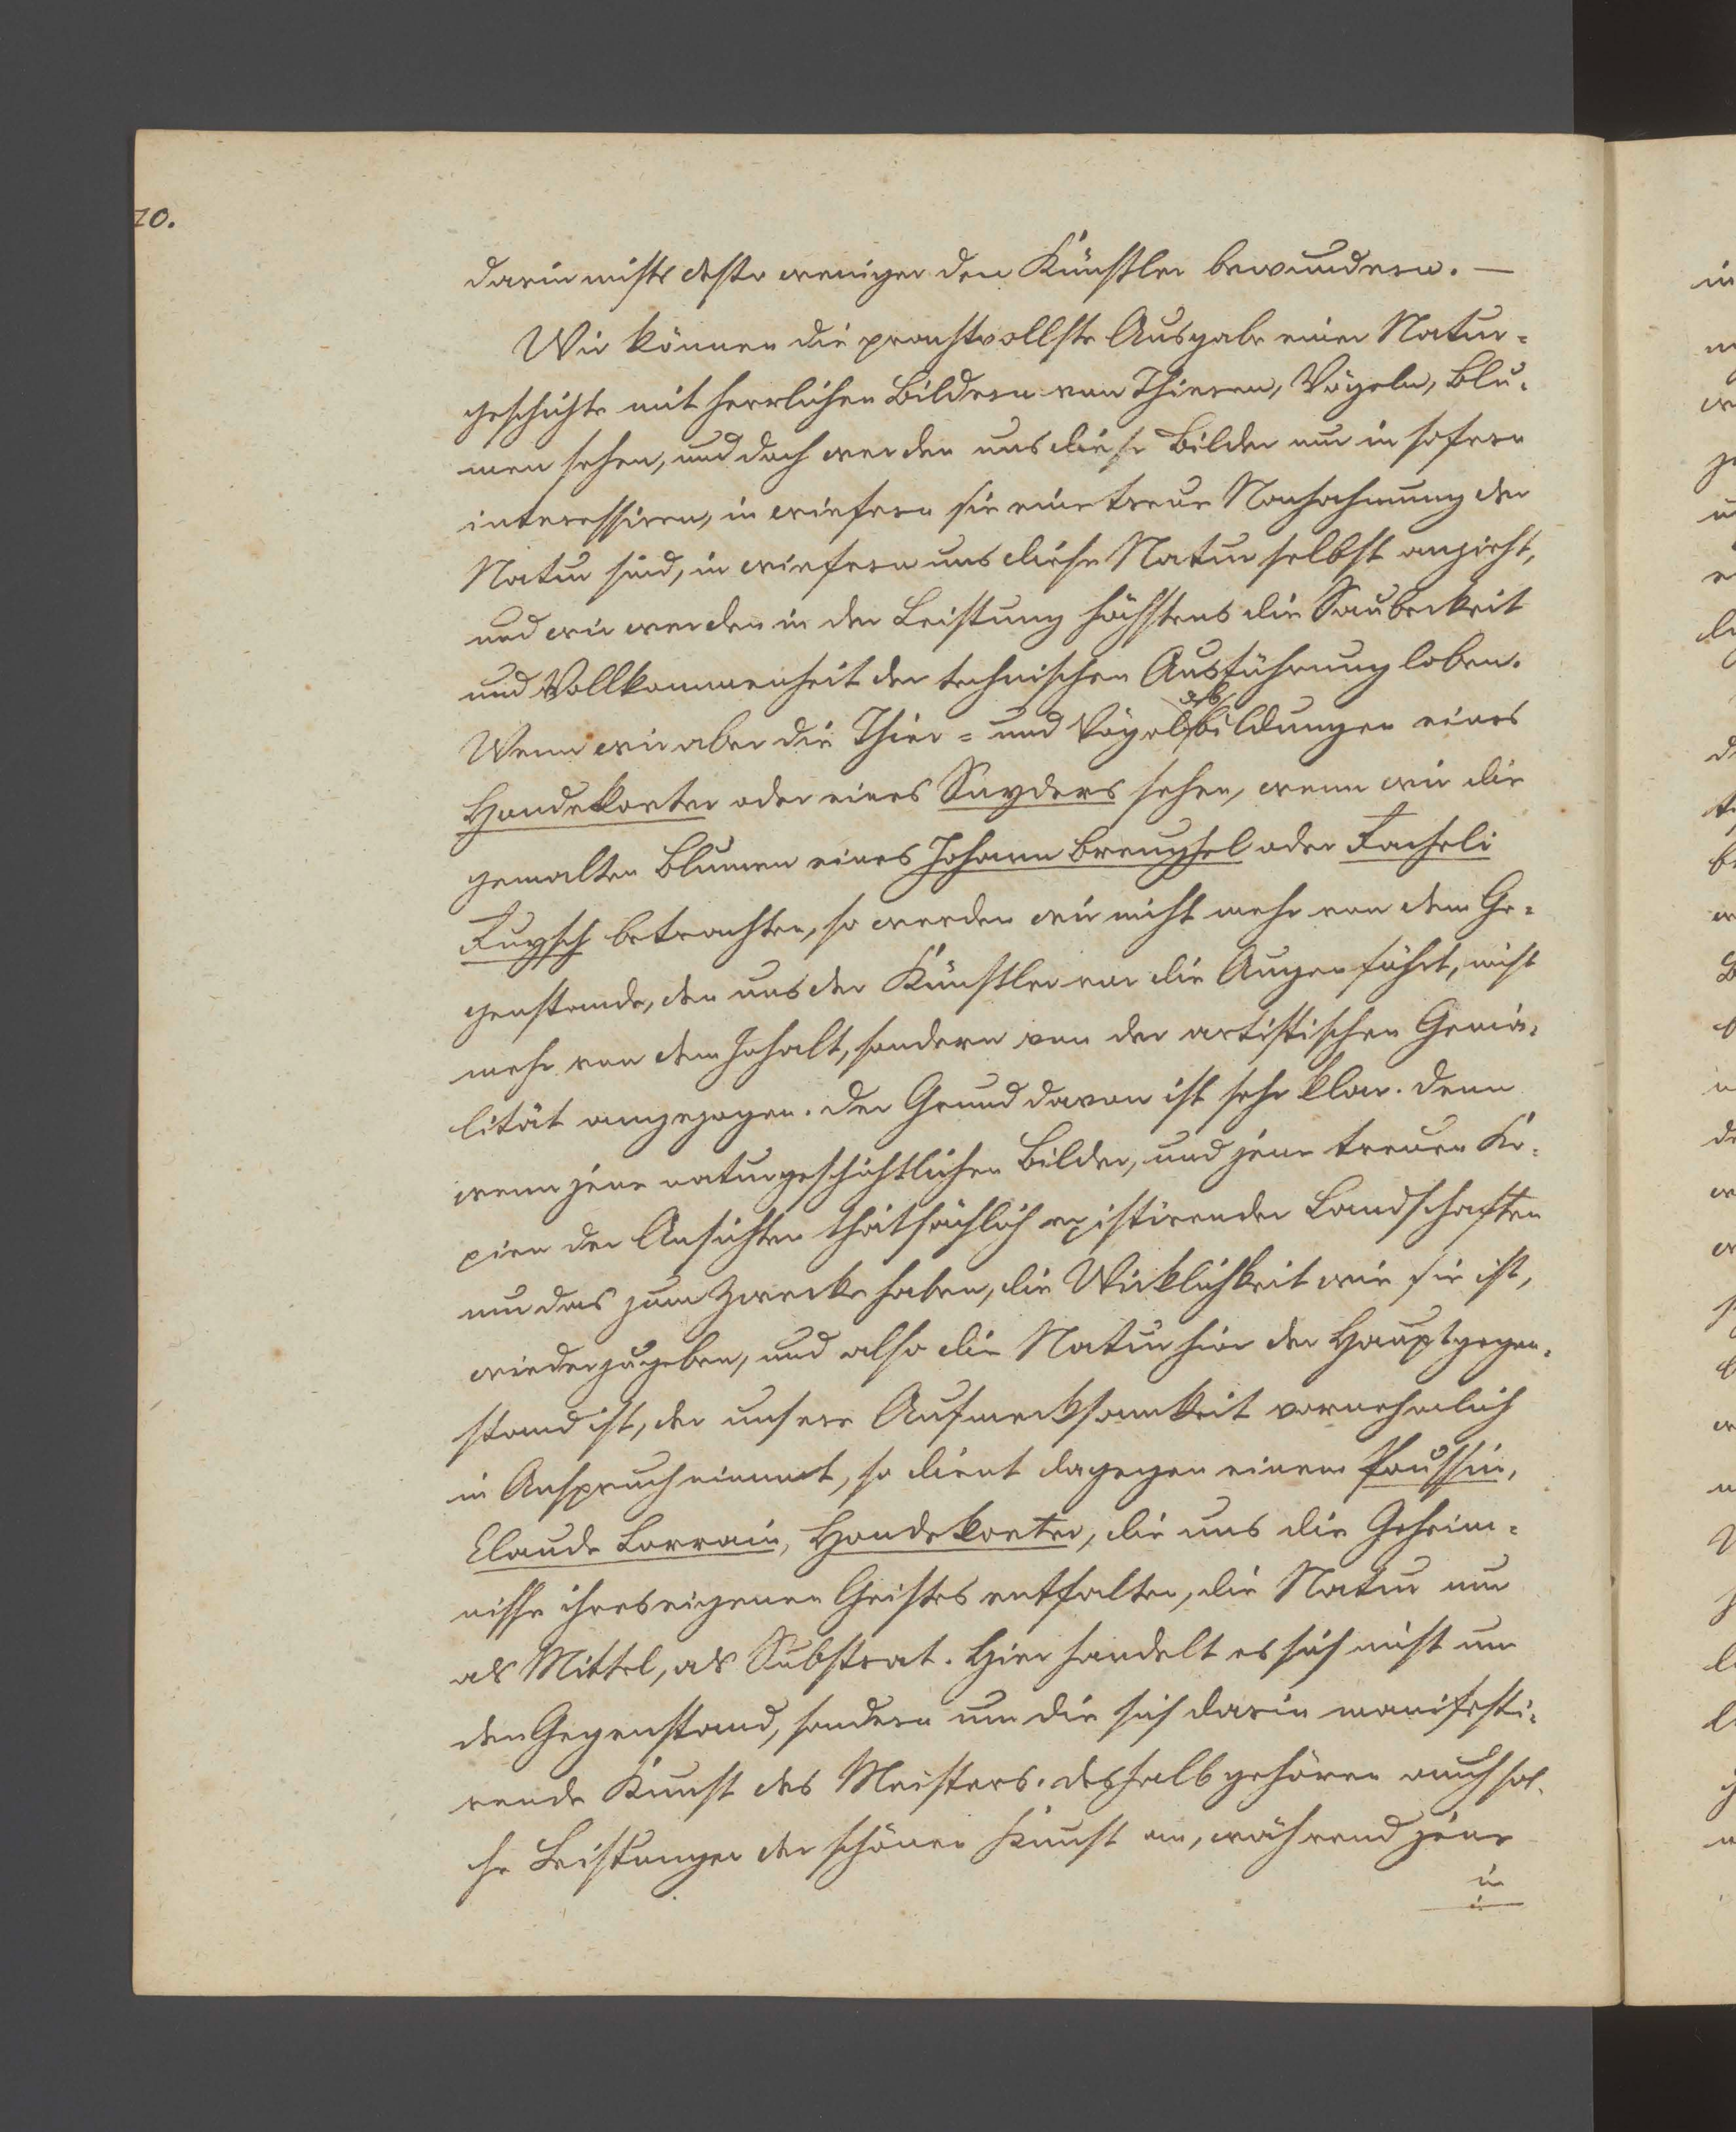 10.
darin nichts desto weniger den Künstler bewundern. —
Wir können die prachtvollste Ausgabe einer Natur=
geschichte mit herrlichen Bildern von Thieren, Vögeln, Blu=
men sehen, und doch werden uns diese Bilder nur in sofern
interessiren, in wiefern sie eine treue Nachahmung der
Natur sind, in wiefern uns diese Natur selbst anzieht,
und wir werden in der Leistung höchstens die Sauberkeit
und Vollkommenheit der technischen Ausführung loben.
Wenn wir aber die Thier= und Vögelabbildungen eines
Hondekoeter oder eines Snyders sehen, wenn wir die
gemalten Blumen eines Johann Breughel oder Facheli
Fuysch betrachten, so werden wir nicht mehr von dem Ge=
genstande, den uns der Künstler vor die Augen führt, nicht
mehr von dem Inhalt, sondern von der artistischen Genia=
lität angezogen. Der Grund davon ist sehr klar. Denn
wenn jene naturgeschichtlichen Bilder, und jene treuen Ko=
pien der Ansichten thatsächlich existirender Landschaften
nur das zum Zwecke haben, die Wirklichkeit wie sie ist,
wiederzugeben, und also die Natur hier der Hauptgegen=
stand ist, der unsere Aufmerksamkeit vornehmlich
in Anspruch nimmt, so dient dagegen einem Poussin,
Claude Lorrain, Hondekoeter, die uns die Geheim=
nisse ihres eigenen Geistes entfalten, die Natur nur
als Mittel, als Substrat. Hier handelt es sich nicht um
den Gegenstand, sondern um die sich darin manifesti=
rende Kunst des Meisters. Deshalb gehören auch sol=
che Leistungen der schönen Kunst an, während jene
in